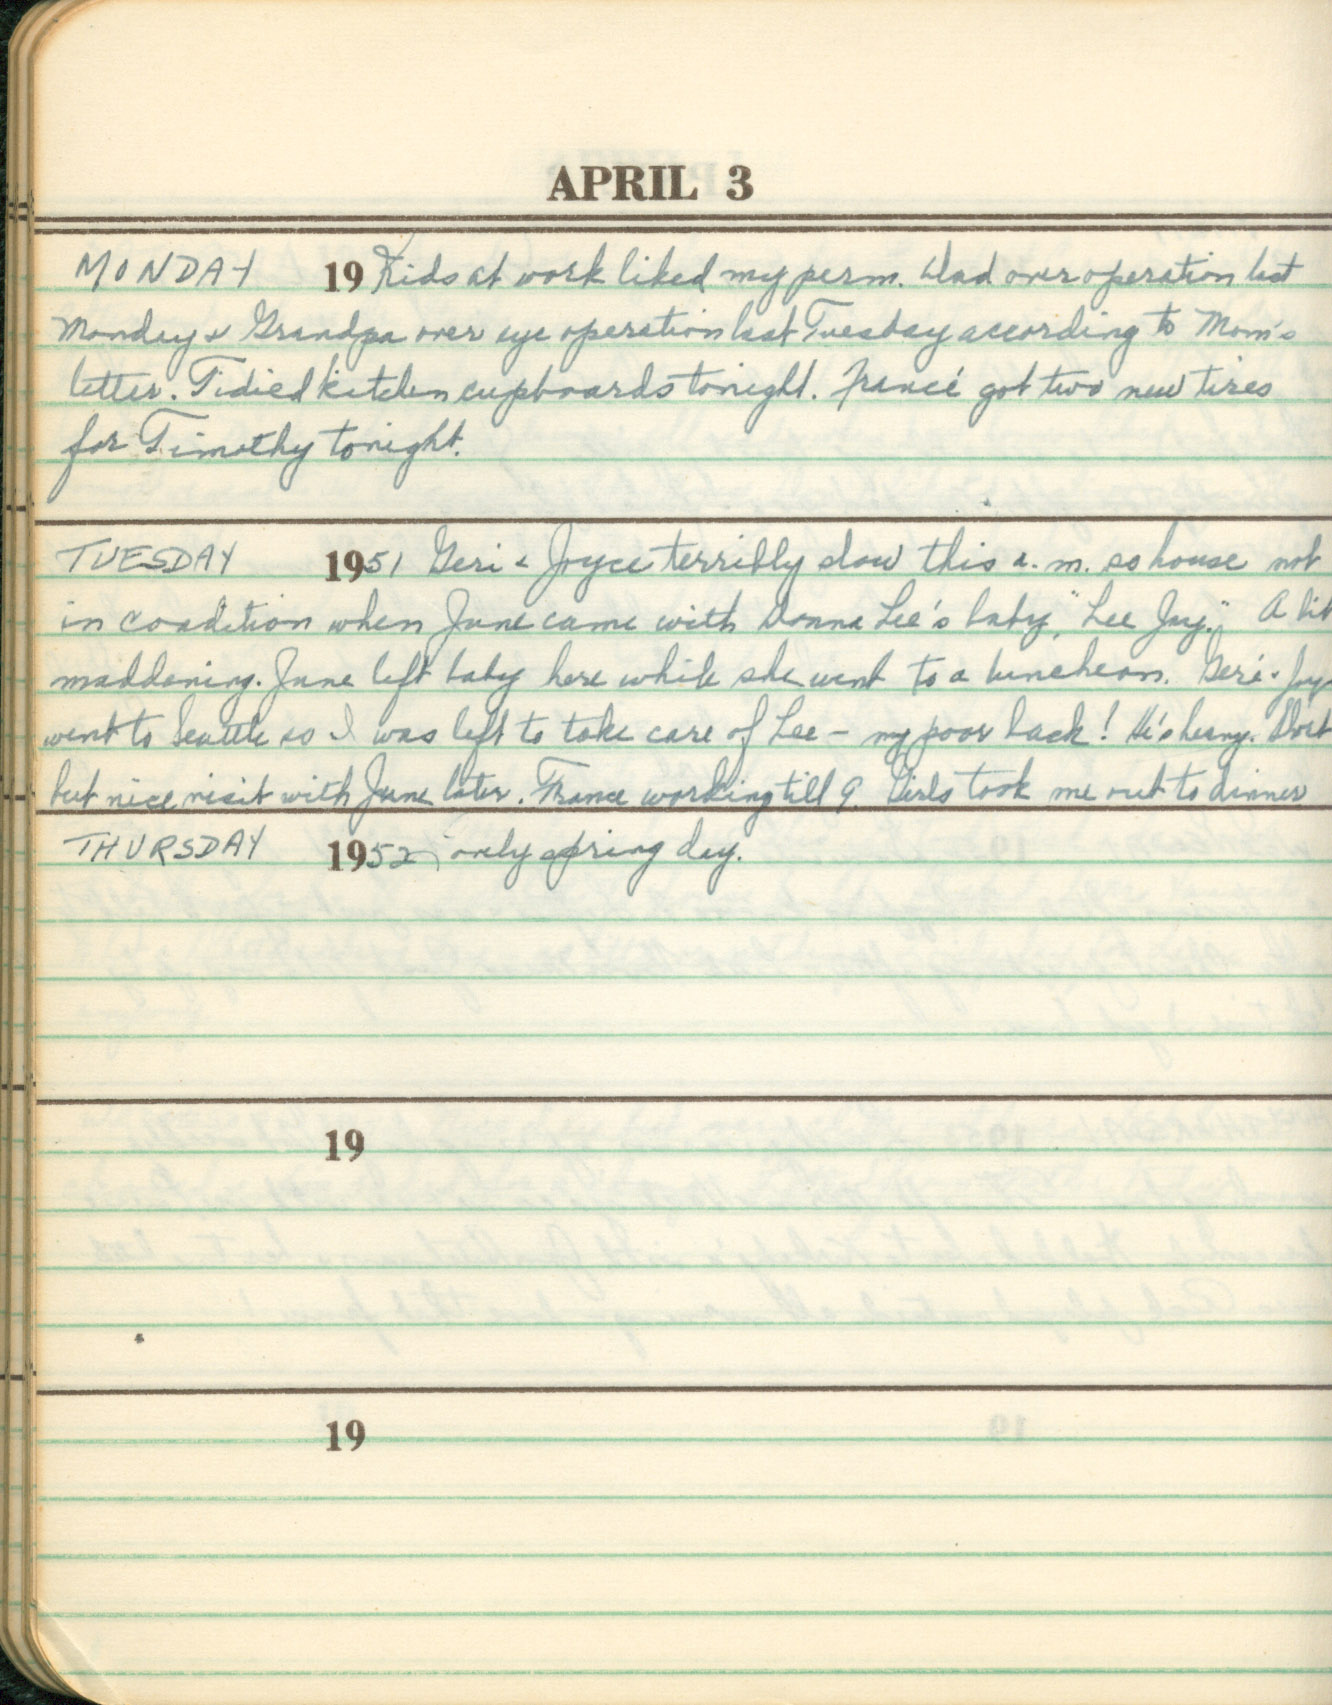 APRIL 3
MONDAY 19 Kids at work liked my perm. Dad over operation last
Monday & Grandpa over eye operation last Tuesday according to Mom's
letter. Tidied kitchen cupboards tonight. France got two new tires
for Timothy tonight.
TUESDAY 1951 Geri & Joyce terribly slow this a.m. so house not
in condition when June came with Donna Lee's baby, "Lee Jay". A bit
maddening. June left baby here while she went to a luncheon. Geri & Joy
went to Seattle so I was left to take care of Lee – my poor back! He's heavy. Short
but nice visit with June later. France working till 9. Girls took me out to dinner
THURSDAY 1952 only spring day.
19
19